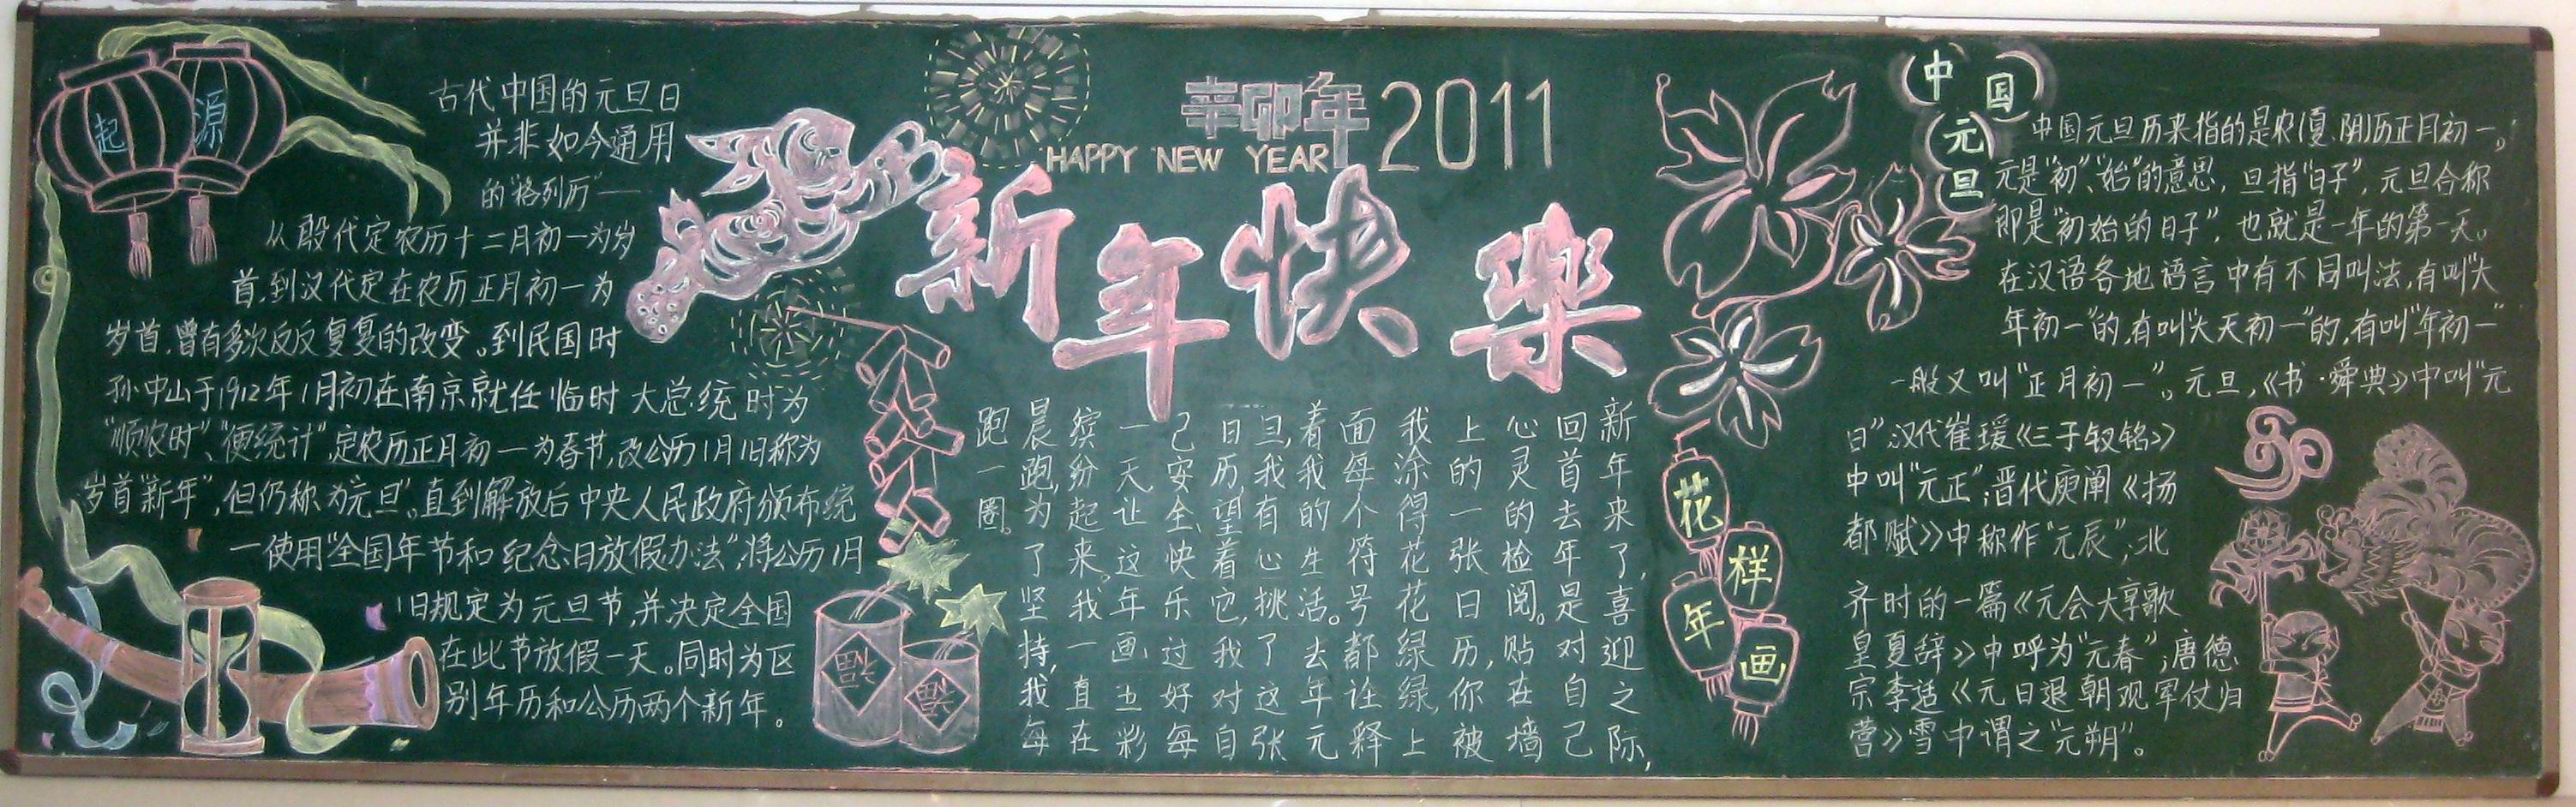 起源
古代中国的元旦日
并非如今通用
的“格列历”—
从殷代定农历十二月初一为岁
首,到汉代定在农历正月初一为
岁首,曾有多次反反复复的改变。到民国时
孙中山于1912年1月初在南京就任临时大总统时为
“顺农时”、“便统计”,定农历正月初一为春节,改公历1月1日称为
岁首“新年”,但仍称为“元旦”。直到解放后中央人民政府颁布统
一使用“全国年节和纪念日放假办法”,将公历1月
1日规定为元旦节,并决定全国
在此节放假一天。同时为区
别年历和公历两个新年。
辛卯年 2011
HAPPY NEW YEAR
新年快樂
新年来了,喜迎之际,
回首去年是对自己
心灵的检阅。贴在墙
上的一张日历,你被
我涂得花花绿绿,上
面每个符号都诠释
着我的生活。去年元
旦,我有心挑了这张
日历,望着它,我对自
己安全、快乐过好每
一天让这年画五彩
缤纷起来。我一直在
晨跑,为了坚持,我每
跑一圈。
花样年画
福
福
中国元旦
中国元旦历来指的是农(夏、阴)历正月初一。
元是“初”、“始”的意思,旦指“日子”,元旦合称
即是“初始的日子”,也就是一年的第一天。
在汉语各地语言中有不同叫法,有叫“大
年初一”的,有叫“大天初一”的,有叫“年初一”
一般又叫“正月初一”。元旦,《书·舜典》中叫“元
日”,汉代崔瑗《三子钗铭》
中叫“元正”;晋代庾阐《扬
都赋》中称作“元辰”;北
齐时的一篇《元会大享歌
皇夏辞》中呼为“元春”;唐德
宗李适《元日退朝观军仗归
营》雪中谓之“元朔”。